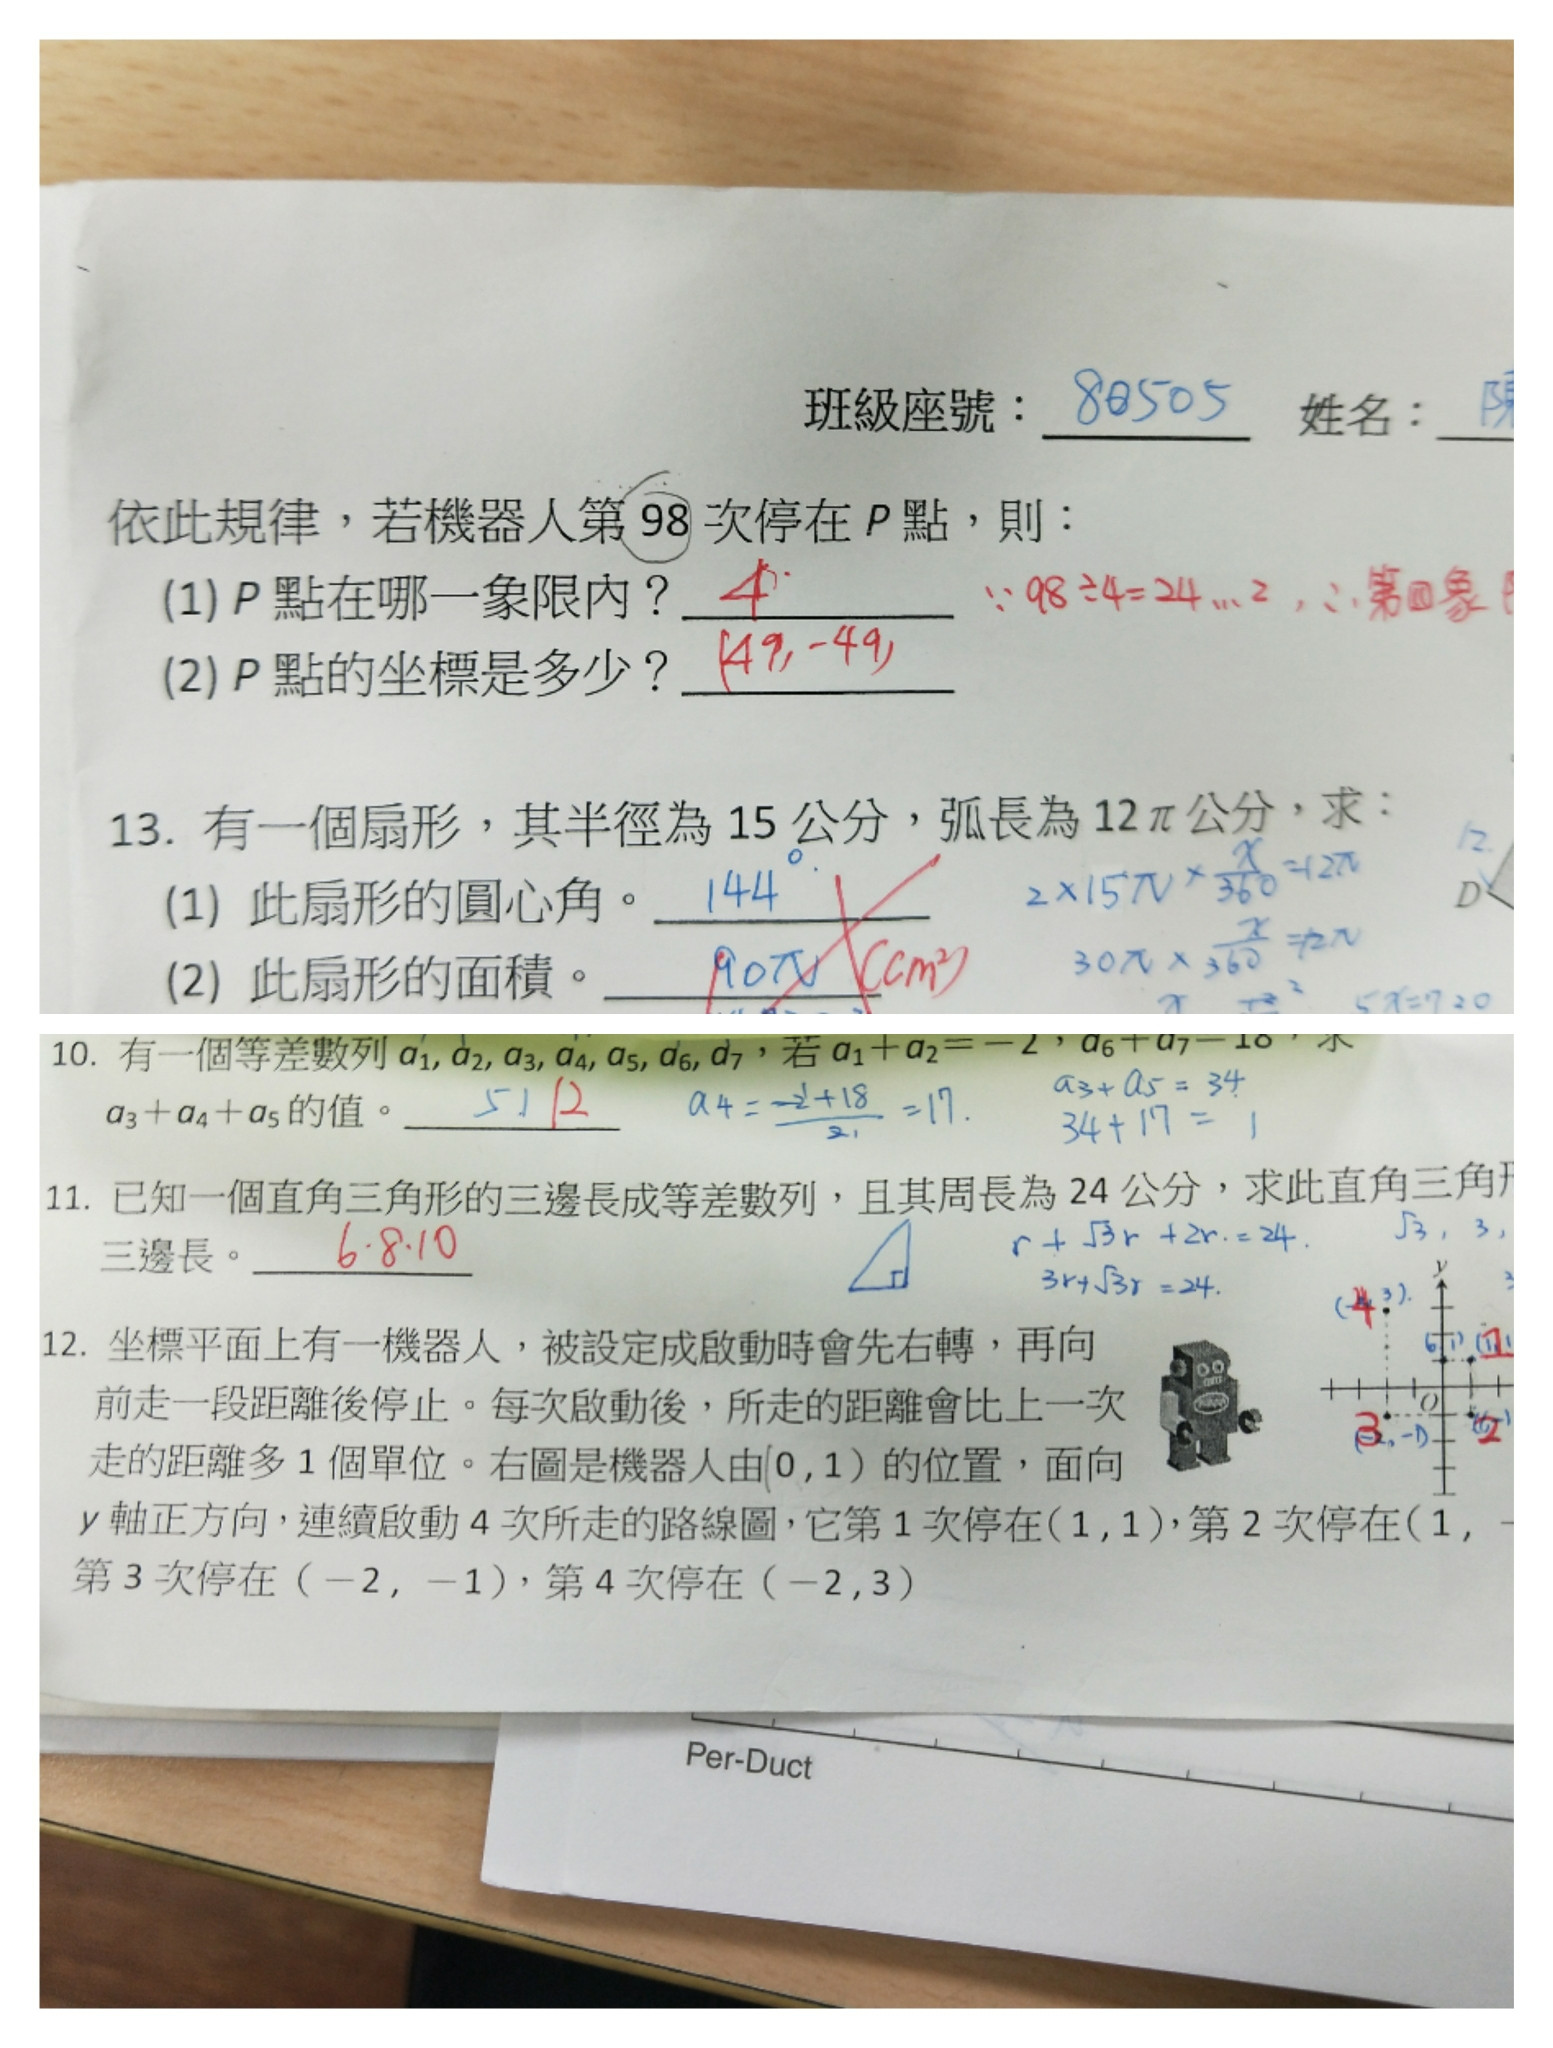 班級座號： 80505 姓名： 陳
依此規律，若機器人第 98 次停在 P 點，則：
(1) P 點在哪一象限內？ 4 ∵98÷4=24...2，∴第四象
(2) P 點的坐標是多少？ (49, -49)
13. 有一個扇形，其半徑為 15 公分，弧長為 12π 公分，求：
(1) 此扇形的圓心角。 144°. 2×15π×x/360=12π
12.
D
(2) 此扇形的面積。 90π (cm²) 30π×x/360=12π
5x=720
10. 有一個等差數列 a1, a2, a3, a4, a5, a6, a7，若 a1＋a2＝－2，a6＋a7＝18，求
a3＋a4＋a5 的值。 51 12 a4=-2+18/2=17. a3+a5=34
34+17=
11. 已知一個直角三角形的三邊長成等差數列，且其周長為 24 公分，求此直角三角形
三邊長。 6.8.10 r+√3r+2r.=24. √3, 3,
3r+√3r=24.
12. 坐標平面上有一機器人，被設定成啟動時會先右轉，再向
前走一段距離後停止。每次啟動後，所走的距離會比上一次
走的距離多 1 個單位。右圖是機器人由(0 , 1) 的位置，面向
y 軸正方向，連續啟動 4 次所走的路線圖，它第 1 次停在(1 , 1)，第 2 次停在(1 , －
第 3 次停在（－2 , －1)，第 4 次停在（－2 , 3）
y
4
1
O
3 (-2,-1) 2
Per-Duct